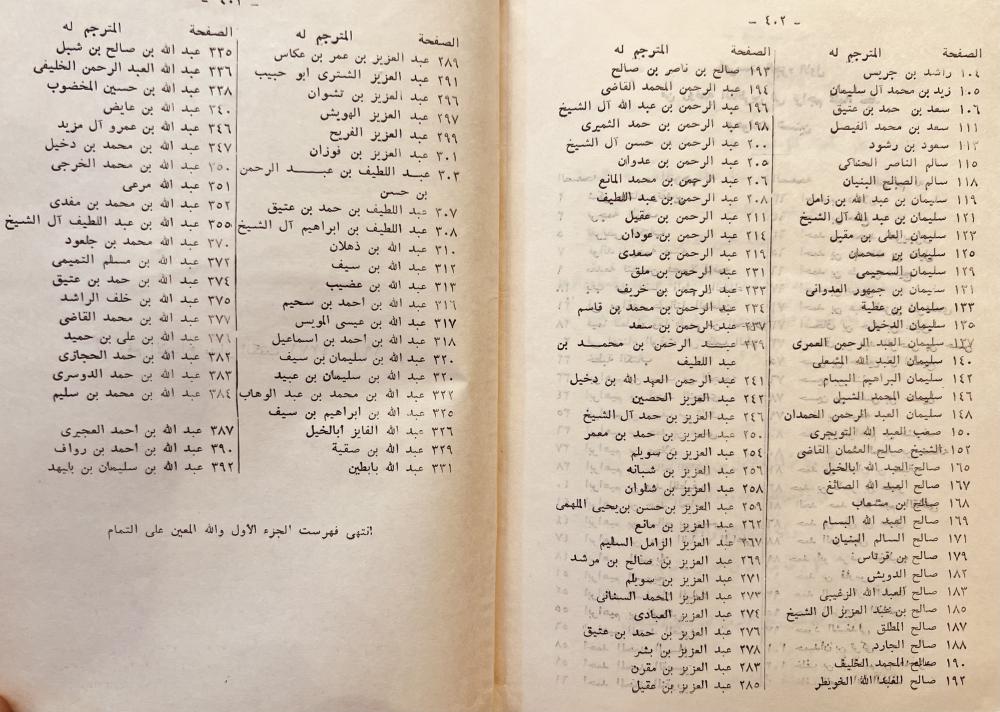 - ٤٠٢ -
الصفحة المترجم له
١٠٤ راشد بن جريس
١٠٥ زيد بن محمد آل سليمان
١٠٦ سعد بن حمد بن عتيق
١١١ سعد بن محمد الفيصل
١١٣ سعود بن رشود
١١٥ سالم الناصر الحناكى
١١٨ سالم الصالح البنيان
١١٩ سليمان بن عبد الله بن زامل
١٢١ سليمان بن عبد الله آل الشيخ
١٢٣ سليمان العلى بن مقبل
١٢٥ سليمان بن سحمان
١٢٩ سليمان السحيمى
١٣١ سليمان بن جمهور العدوانى
١٣٣ سليمان بن عطية
١٣٥ سليمان الدخيل
١٣٧ سليمان العبد الرحمن العمرى
١٤٠ سليمان العبد الله المشعلى
١٤٢ سليمان البراهيم البسام
١٤٦ سليمان المحمد الشبل
١٤٨ سليمان العبد الرحمن الحمدان
١٥٠ صعب العبد الله التويجرى
١٥٢ الشيخ صالح العثمان القاضى
١٦٥ صالح العبد الله ابالخيل
١٦٧ صالح العبد الله الصائغ
١٦٨ صالح بن مشعاب
١٦٩ صالح العبد الله البسام
١٧١ صالح السالم البنيان
١٧٩ صالح بن قرناس
١٨٢ صالح الدويش
١٨٣ صالح العبد الله الزغيبى
١٨٥ صالح بن عبد العزيز آل الشيخ
١٨٧ صالح المطلق
١٨٨ صالح الجارد
١٩٠ صالح المحمد الخليف
١٩٢ صالح العبد الله الخويطر
الصفحة المترجم له
١٩٣ صالح بن ناصر بن صالح
١٩٤ عبد الرحمن المحمد القاضى
١٩٦ عبد الرحمن بن عبد الله آل الشيخ
١٩٨ عبد الرحمن بن حمد الثميرى
٢٠٠ عبد الرحمن بن حسن آل الشيخ
٢٠٥ عبد الرحمن بن عدوان
٢٠٦ عبد الرحمن بن محمد المانع
٢٠٨ عبد الرحمن بن عبد اللطيف
٢١١ عبد الرحمن بن عقيل
٢١٤ عبد الرحمن بن عودان
٢١٩ عبد الرحمن بن سعدى
٢٣١ عبد الرحمن بن ملق
٢٣٣ عبد الرحمن بن خريف
٢٣٤ عبد الرحمن بن محمد بن قاسم
٢٣٧ عبد الرحمن بن سعد
٢٣٩ عبد الرحمن بن محمد بن
عبد اللطيف
٢٤١ عبد الرحمن العبد الله بن دخيل
٢٤٢ عبد العزيز الحصين
٢٤٦ عبد العزيز بن حمد آل الشيخ
٢٥٠ عبد العزيز بن حمد بن معمر
٢٥٤ عبد العزيز بن سويلم
٢٥٦ عبد العزيز بن شبانه
٢٥٨ عبد العزيز بن شلوان
٢٥٩ عبد العزيز بن حسن بن يحيى الملهمى
٢٦٢ عبد العزيز بن مانع
٢٦٧ عبد العزيز الزامل السليم
٢٦٩ عبد العزيز بن صالح بن مرشد
٢٧١ عبد العزيز بن سويلم
٢٧٣ عبد العزيز المحمد السنانى
٢٧٤ عبد العزيز العبادى
٢٧٦ عبد العزيز بن حمد بن عتيق
٢٧٨ عبد العزيز بن بشر
٢٨٣ عبد العزيز بن مقرن
٢٨٥ عبد العزيز بن عقيل
الصفحة المترجم له
٢٨٩ عبد العزيز بن عمر بن عكاس
٢٩١ عبد العزيز الشترى ابو حبيب
٢٩٦ عبد العزيز بن تشوان
٢٩٧ عبد العزيز الهويش
٢٩٩ عبد العزيز الفريح
٣٠١ عبد العزيز بن فوزان
٣٠٣ عبد اللطيف بن عبد الرحمن
بن حسن
٣٠٧ عبد اللطيف بن حمد بن عتيق
٣٠٨ عبد اللطيف بن ابراهيم آل الشيخ
٣١٠ عبد الله بن ذهلان
٣١٢ عبد الله بن سيف
٣١٣ عبد الله بن عضيب
٣١٦ عبد الله بن احمد بن سحيم
٣١٧ عبد الله بن عيسى المويس
٣١٨ عبد الله بن احمد بن اسماعيل
٣٢٠ عبد الله بن سليمان بن سيف
٣٢٠ عبد الله بن سليمان بن عبيد
٣٢٢ عبد الله بن محمد بن عبد الوهاب
٣٢٥ عبد الله بن ابراهيم بن سيف
٣٢٦ عبد الله الفايز ابالخيل
٣٢٩ عبد الله بن صقية
٣٣١ عبد الله بابطين
الصفحة المترجم له
٣٣٥ عبد الله بن صالح بن شبل
٣٣٦ عبد الله العبد الرحمن الخليفى
٣٣٨ عبد الله بن حسين المخضوب
٣٤٠ عبد الله بن عايض
٣٤٦ عبد الله بن عمرو آل مزيد
٣٤٧ عبد الله بن محمد بن دخيل
٣٥٠ عبد الله بن محمد الخرجى
٣٥١ عبد الله مرعى
٣٥٢ عبد الله بن محمد بن مفدى
٣٥٥ عبد الله بن عبد اللطيف آل الشيخ
٣٧٠ عبد الله محمد بن جلعود
٣٧٢ عبد الله بن مسلم التميمى
٣٧٤ عبد الله بن حمد بن عتيق
٣٧٥ عبد الله بن خلف الراشد
٣٧٧ عبد الله بن محمد القاضى
٣٧٦ عبد الله بن على بن حميد
٣٨٢ عبد الله بن حمد الحجازى
٣٨٣ عبد الله بن حمد الدوسرى
٣٨٤ عبد الله بن محمد بن سليم
٣٨٧ عبد الله بن احمد العجيرى
٣٩٠ عبد الله بن احمد بن رواف
٣٩٢ عبد الله بن سليمان بن بليهد
انتهى فهرست الجزء الأول والله المعين على التمام